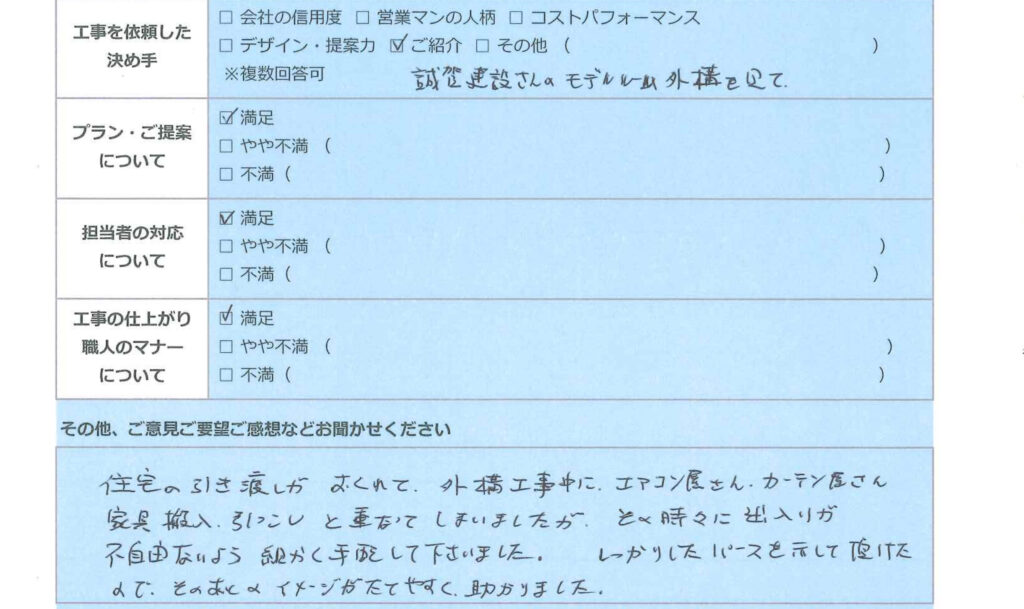 工事を依頼した
決め手
□ 会社の信用度 □ 営業マンの人柄 □ コストパフォーマンス
□ デザイン・提案力 ☑ ご紹介 □ その他 ( )
※複数回答可 誠賀建設さんのモデルルーム外構を見て.
プラン・ご提案
について
☑ 満足
□ やや不満 ( )
□ 不満 ( )
担当者の対応
について
☑ 満足
□ やや不満 ( )
□ 不満 ( )
工事の仕上がり
職人のマナー
について
☑ 満足
□ やや不満 ( )
□ 不満 ( )
その他、ご意見ご要望ご感想などお聞かせください
住宅の引き渡しが おくれて、外構工事中に、エアコン屋さん、カーテン屋さん
家具搬入、引っこし と重なって しまいましたが、その時々に 出入りが
不自由ないよう 細かく手配して下さいました。 しっかりしたパースを示して頂けた
ので、そのあとの イメージがたてやすく、助かりました。